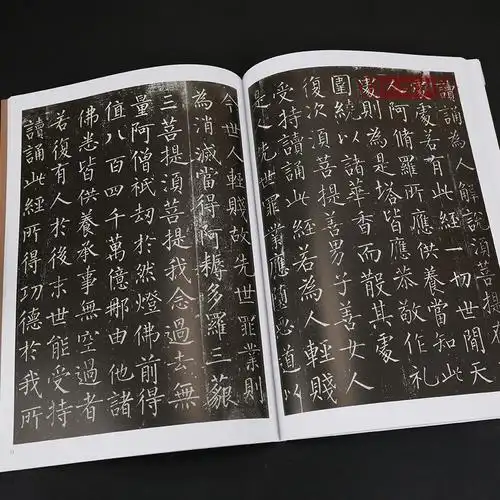 讀誦為人解說須菩提
處處若有此經一切世間天
人阿脩羅所應供養當知此
處則為是塔皆應恭敬作禮
圍繞以諸華香而散其處
復次須菩提善男子善女人
受持讀誦此經若為人輕賤
是人先世罪業應墮惡道以
今世人輕賤故先世罪業則
為消滅當得阿耨多羅三藐
三菩提須菩提我念過去無
量阿僧祇劫於然燈佛前得
值八百四千萬億那由他諸
佛悉皆供養承事無空過者
若復有人於後末世能受持
讀誦此經所得功德於我所